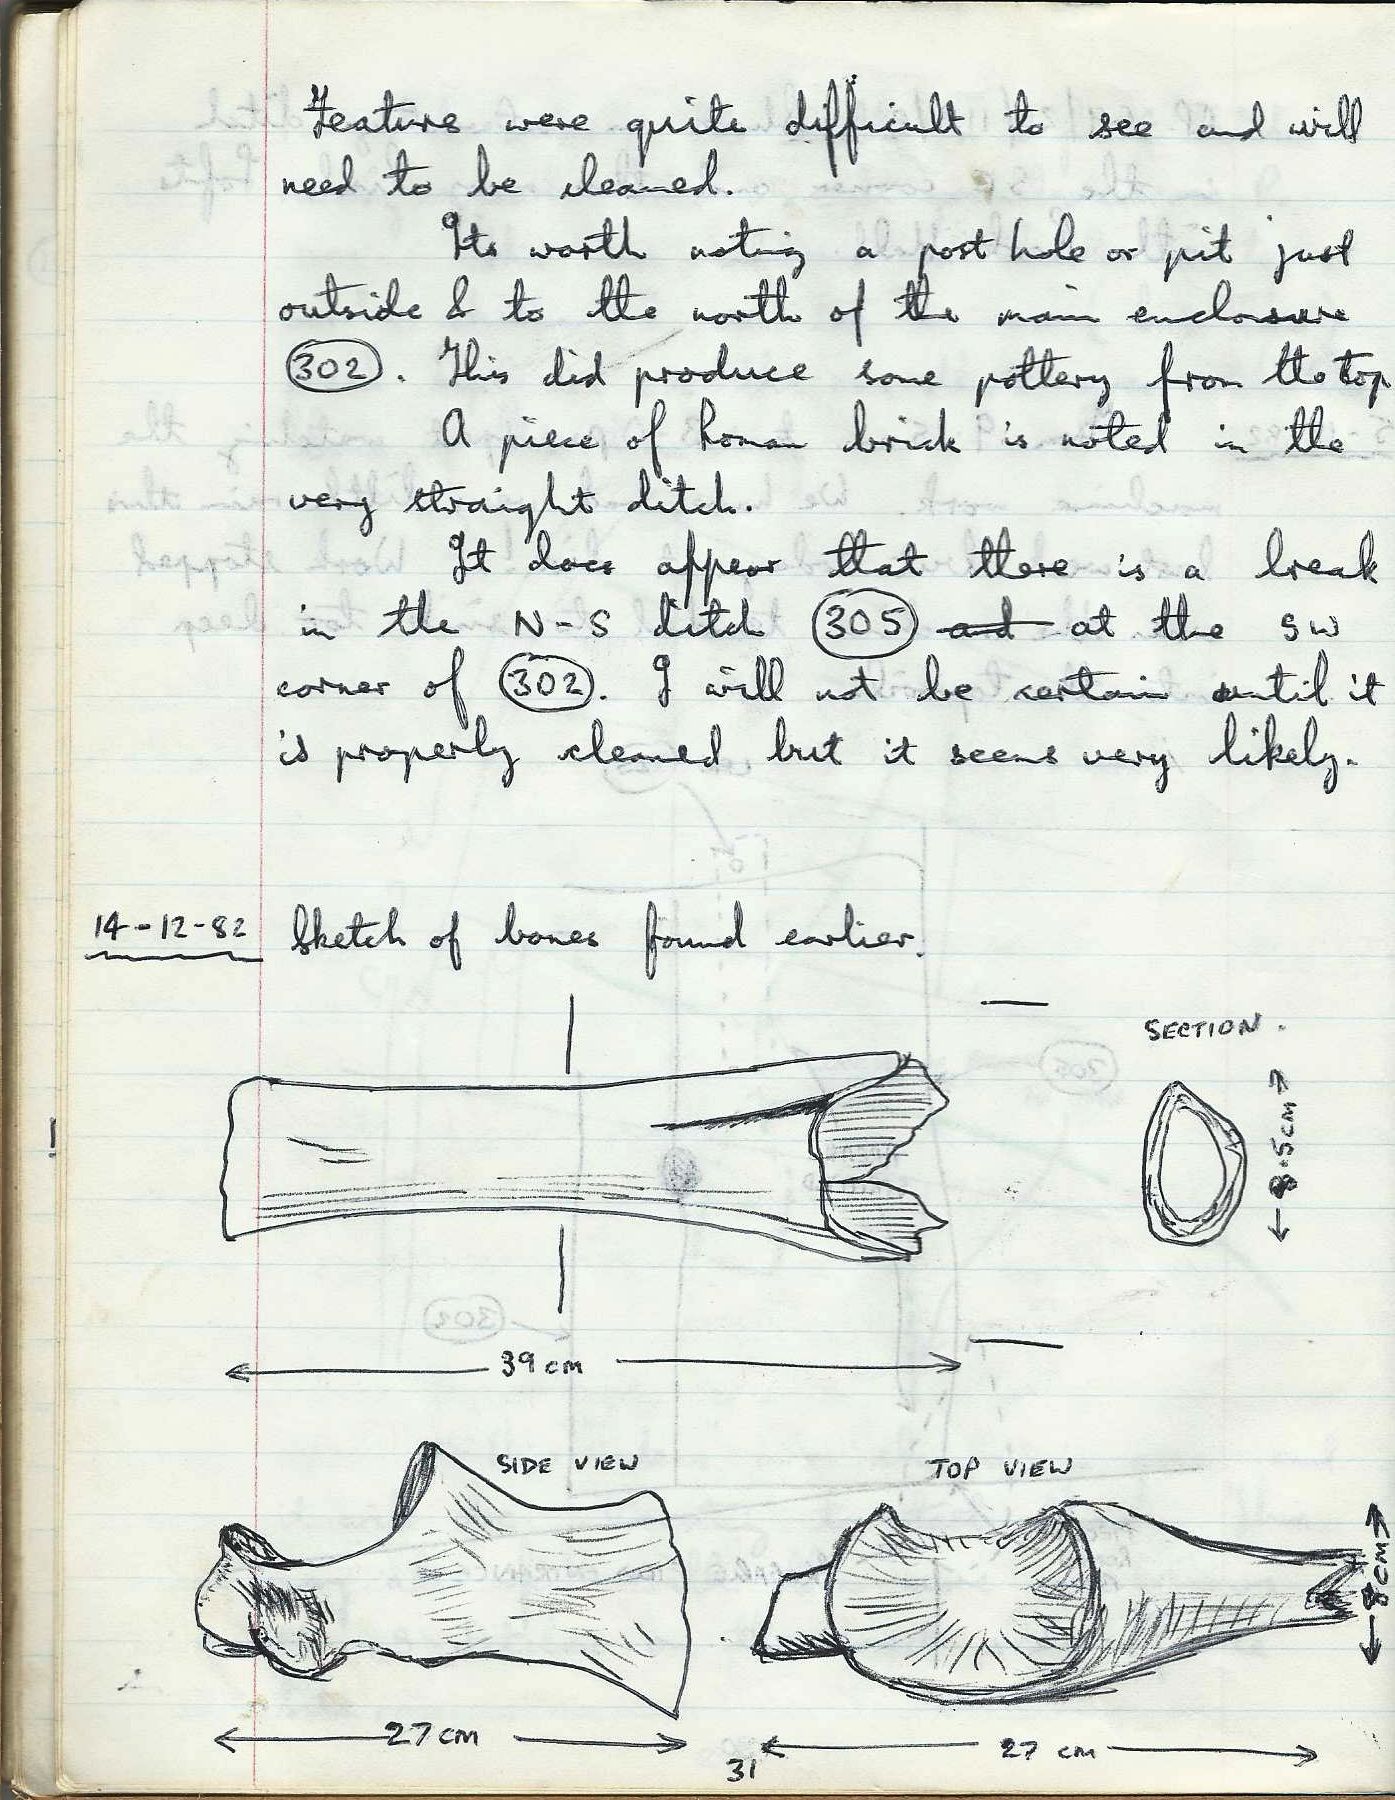 Feature were quite difficult to see and will
need to be cleaned.
Its worth noting a post hole or pit just
outside & to the north of the main enclosure
302. This did produce some pottery from the top
A piece of Roman brick is noted in the
very straight ditch.
It does appear that there is a break
in the N-S ditch 305 and at the SW
corner of 302. I will not be certain until it
is properly cleaned but it seems very likely.
14-12-82 Sketch of bones found earlier.
SECTION.
8.5cm
39cm
SIDE VIEW
TOP VIEW
8cm
27cm
27 cm
31